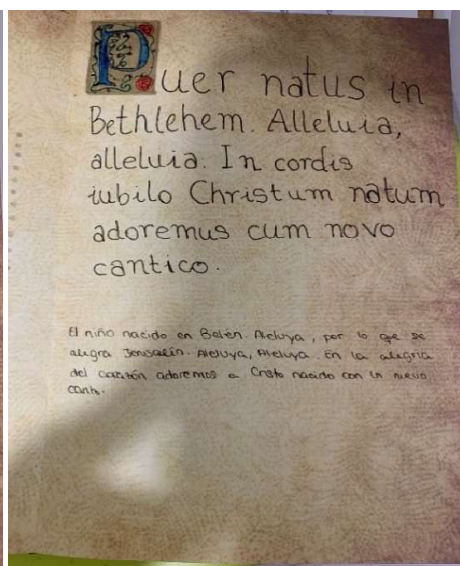 Puer natus in
Bethlehem. Alleluia,
alleluia. In cordis
iubilo Christum natum
adoremus cum novo
cantico.
El niño nacido en Belén. Aleluya, por lo que se
alegra Jerusalén. Aleluya, Aleluya. En la alegría
del corazón adoremos a Cristo nacido con un nuevo
canto.